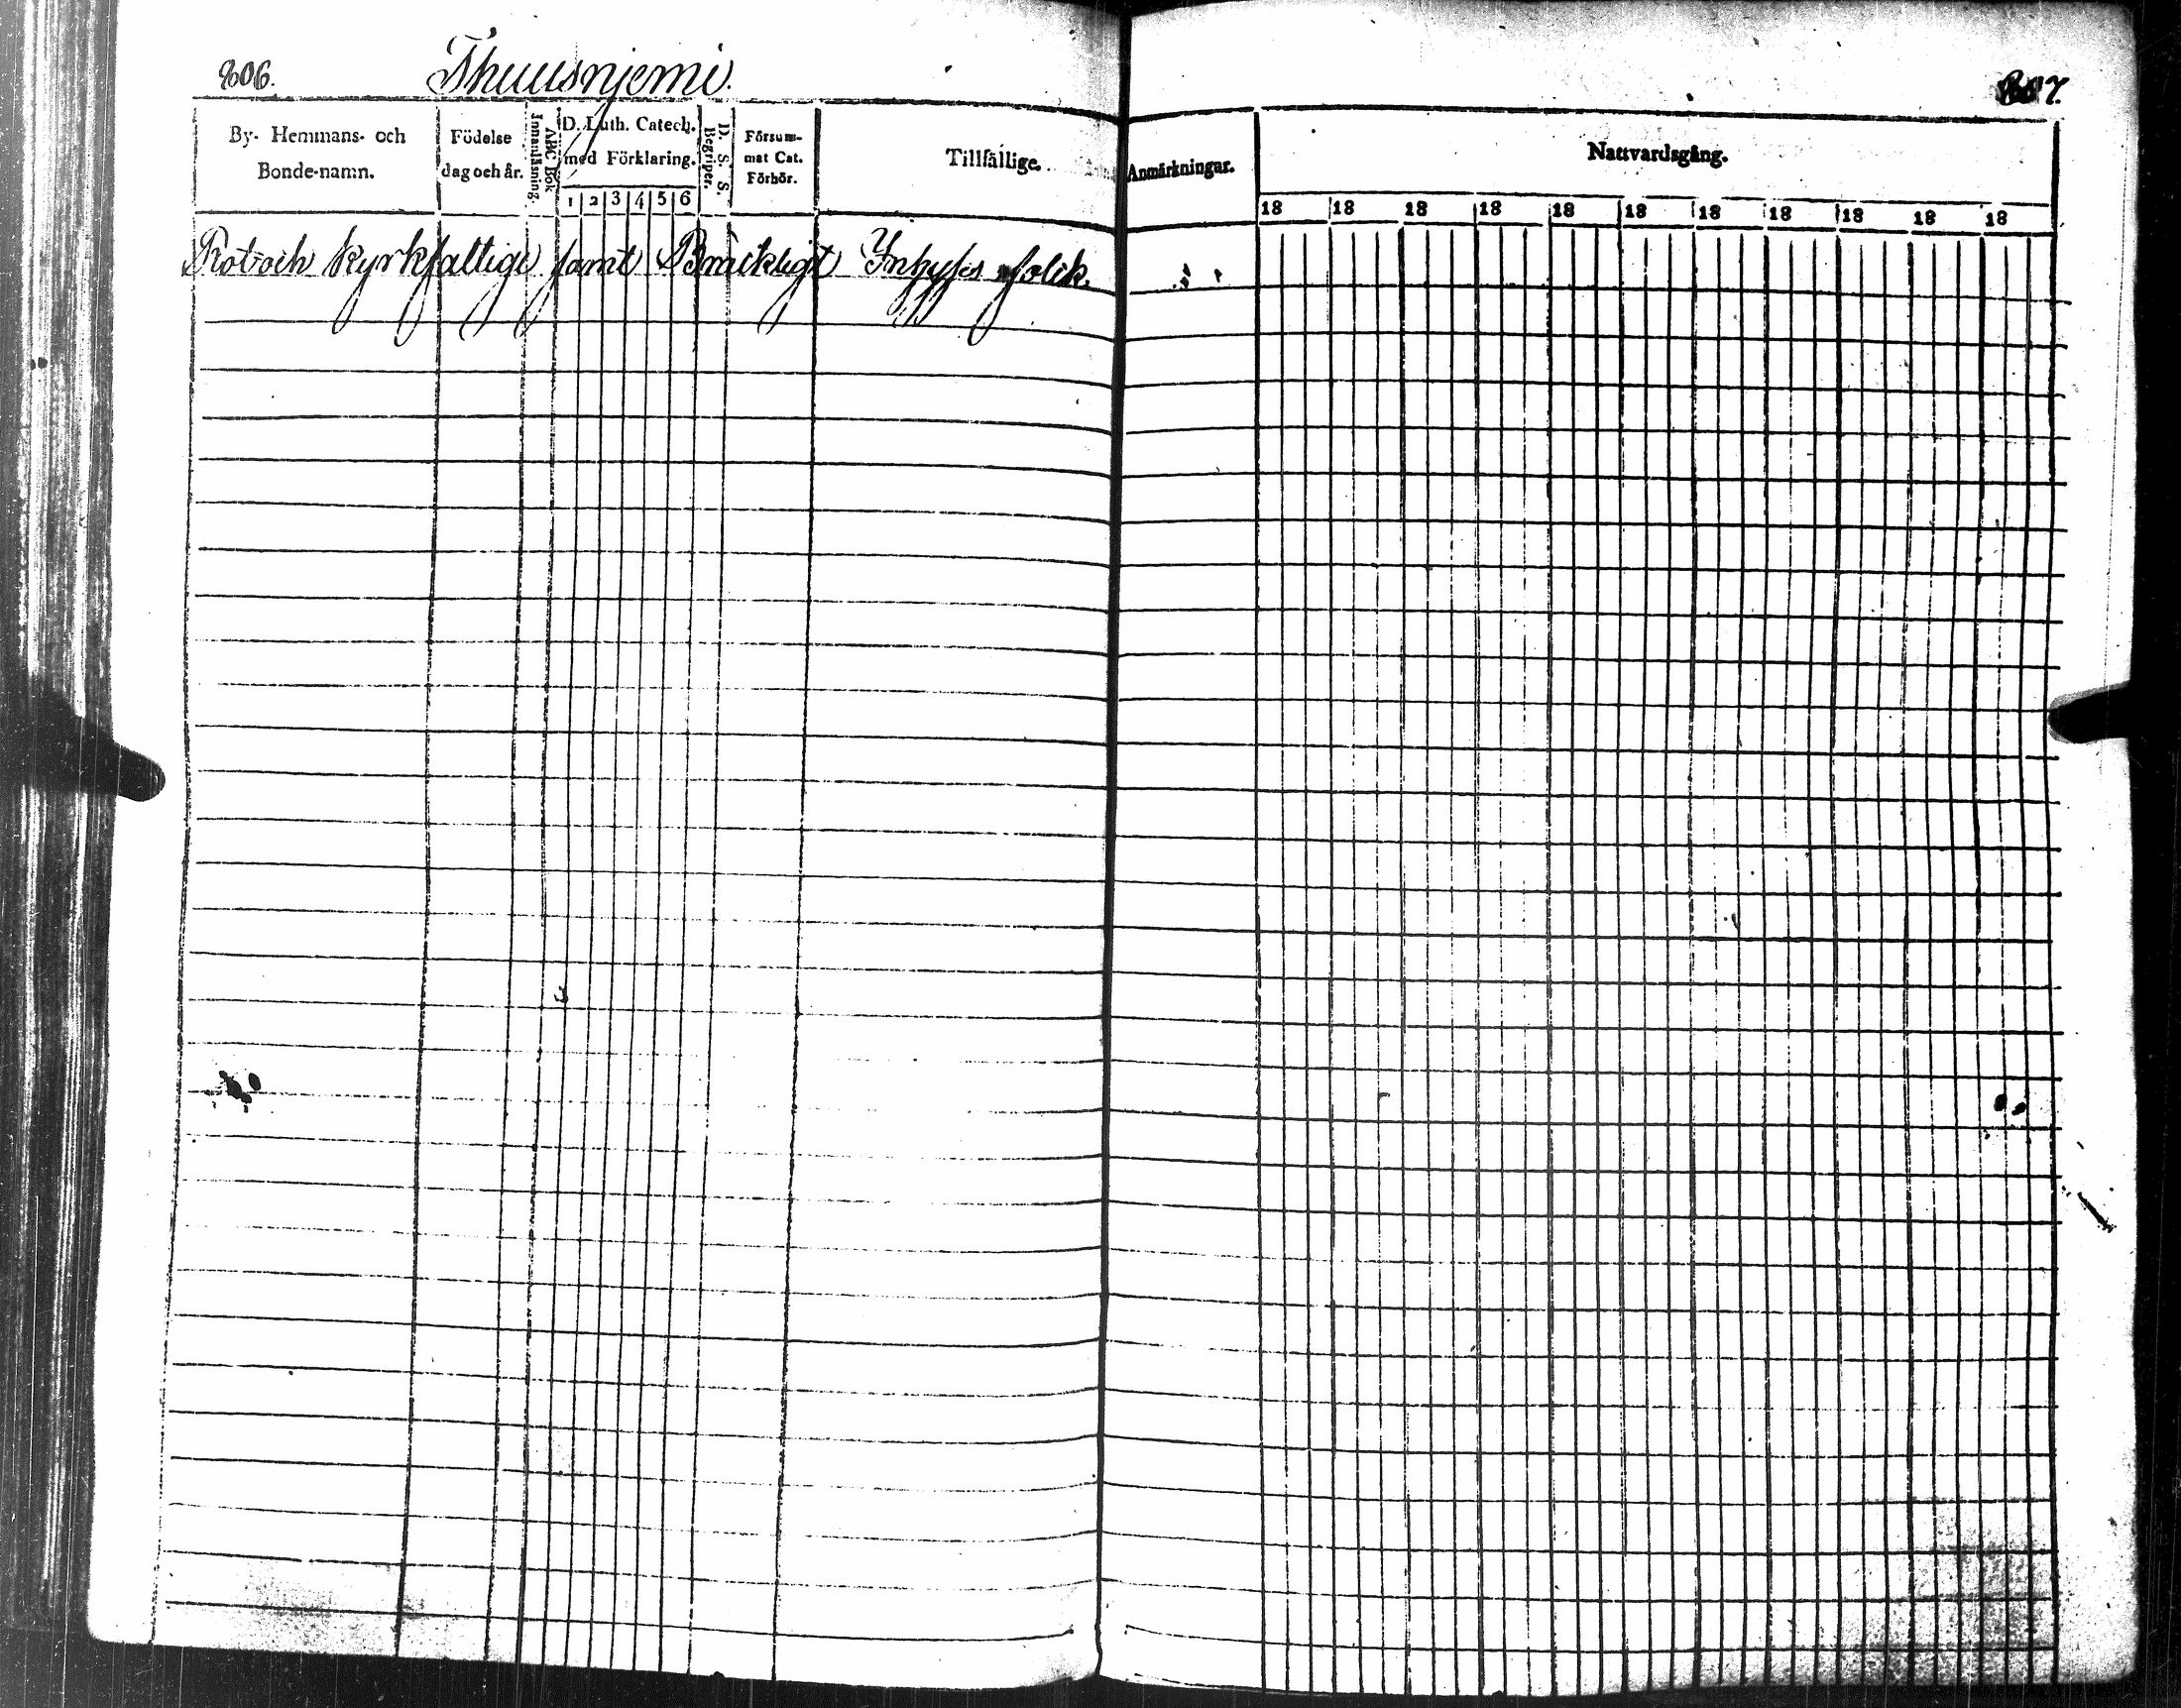 806.
Thuusnjemi.
807.
By- Hemmans- och
Bonde-namn.
Födelse
dag och år.
ABC Bok
Innanläsning.
D. Luth. Catech.
med Förklaring.
1 2 3 4 5 6
D. S. S.
Begriper.
Försum-
mat Cat.
Förhör.
Tillfällige.
Anmärkningar.
Nattvardsgång.
18 18 18 18 18 18 18 18 18 18 18
Rot och Kyrkfattige samt Bräckligt Inhyses folck.